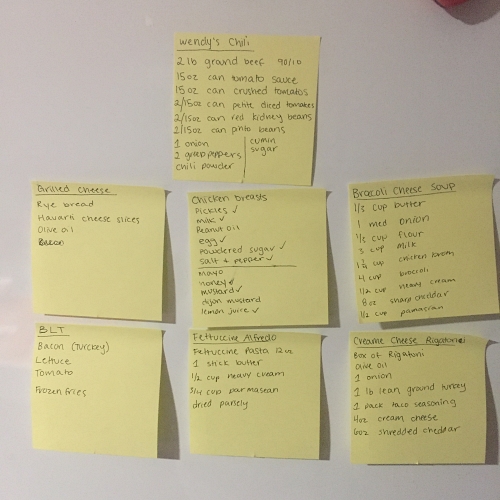 Wendy's Chili
2 lb ground beef 90/10
15oz can tomato sauce
15oz can crushed tomatoes
2/15oz can petite diced tomatoes
2/15oz can red kidney beans
2/15oz can pinto beans
1 onion
2 green peppers
chili powder
cumin
sugar
Grilled Cheese
Rye bread
Havarti cheese slices
Olive oil
Bacon
Chicken breasts
Pickles ✓
milk ✓
Peanut oil
egg ✓
powdered sugar ✓
salt + pepper ✓
mayo
honey ✓
mustard ✓
dijon mustard
lemon juice ✓
Broccoli Cheese Soup
1/3 cup butter
1 med onion
1/2 cup flour
3 cup milk
cup chicken broth
4 cup broccoli
1/2 cup heavy cream
8 oz sharp cheddar
1/2 cup parmesian
BLT
Bacon (Turkey)
Lettuce
Tomato
Frozen Fries
Fettuccine Alfredo
Fettuccine Pasta 12oz
1 stick butter
1/2 cup heavy cream
3/4 cup parmasean
dried parsely
Creame Cheese Rigatonei
Box of Rigatoni
olive oil
1 onion
1 lb lean ground turkey
1 pack taco seasoning
4oz cream cheese
6oz shredded cheddar